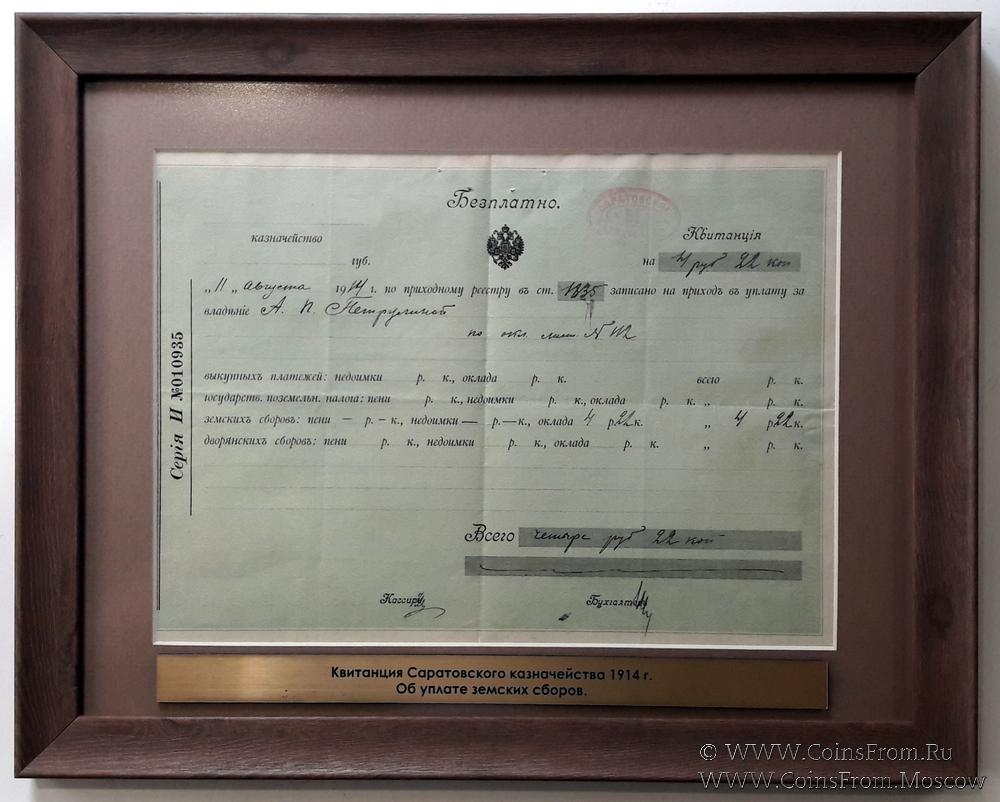 Безплатно.
САРАТОВСКОЕ
казначейство
Квитанція
губ.
на 4 руб 22 коп
„11„ августа 1914 г. по приходному реестру въ ст. 1335 записано на приходъ въ уплату за
владѣніе А. П.
по окл. лист. №
выкупныхъ платежей: недоимки р. к., оклада р. к. всего р. к.
государств. поземельн. налога: пени р. к., недоимки р. к., оклада р. к. „ р. к.
земскихъ сборовъ: пени — р. – к., недоимки — р. — к., оклада 4 р. 22 к. „ 4 р. 22 к.
дворянскихъ сборовъ: пени р. к., недоимки р. к., оклада р. к. „ р. к.
Серія И №010935
Всего четыре руб 22 коп
Кассиръ
Бухгалтеръ
Квитанция Саратовского казначейства 1914 г.
Об уплате земских сборов.
© WWW.CoinsFrom.Ru
WWW.CoinsFrom.Moscow